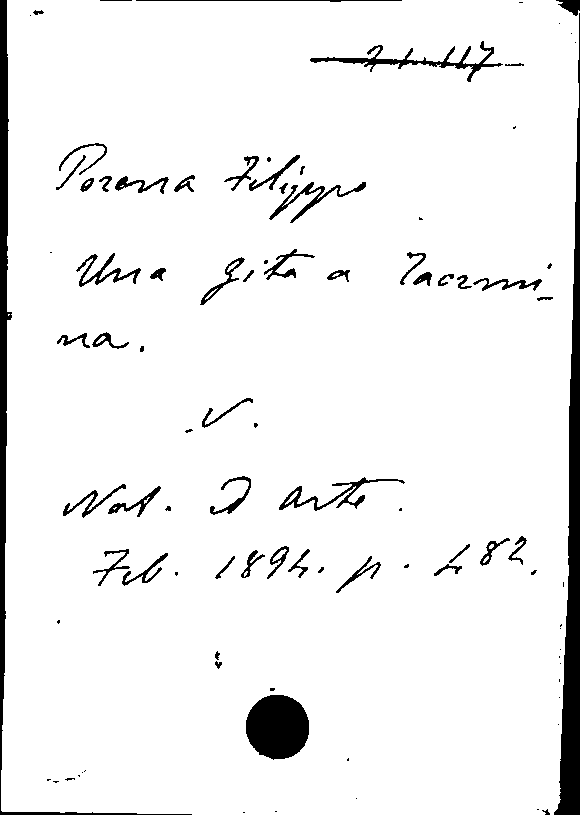 Porena Filippo
Una gita a Taormi-
na.
V.
Nat. ed arte.
Feb. 1894. p. 482.